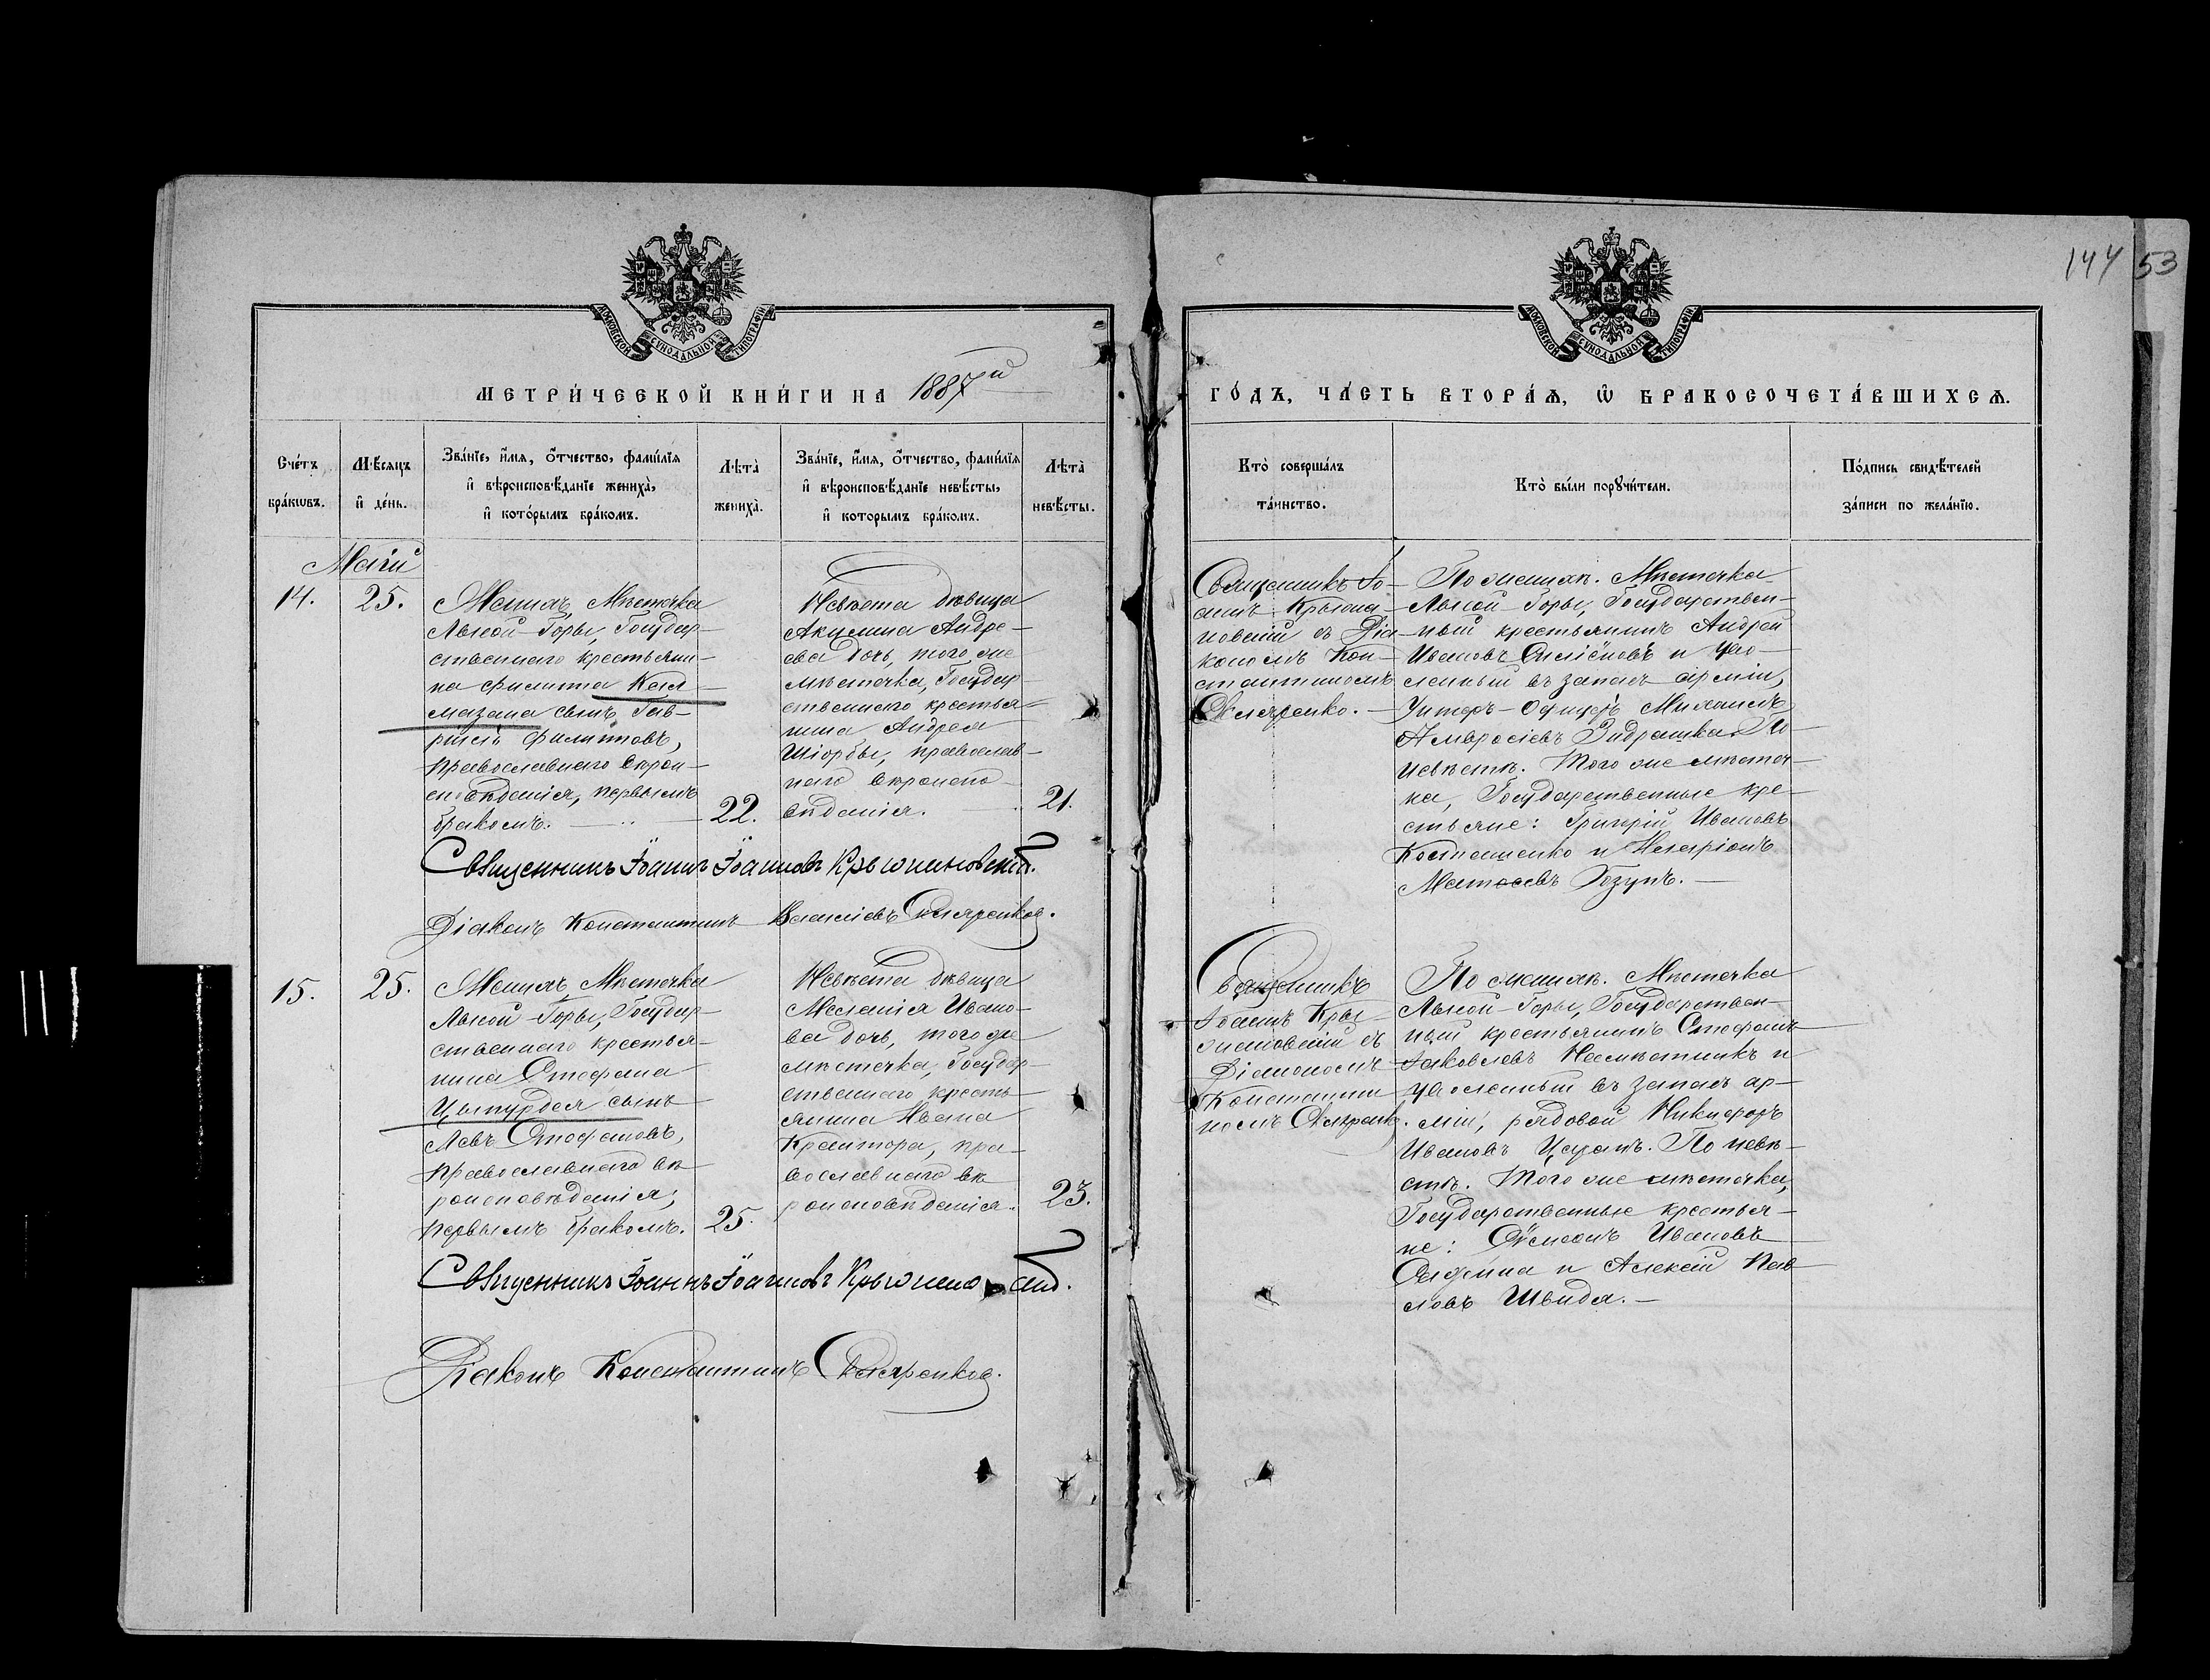 144 53
МОСКОВСКОЙ СѴНОДАЛЬНОЙ ТИПОГРАФІИ
МОСКОВСКОЙ СѴНОДАЛЬНОЙ ТИПОГРАФІИ
МЕТРИ́ЧЕСКОЙ КНИ́ГИ НА 1887й
ГО́ДЪ, ЧА́СТЬ ВТОРА́Ѧ, Ѡ҆ БРАКОСОЧЕТА́ВШИХСѦ.
Счетъ браковъ.
Мѣсяцъ и день.
Званіе, имя, отчество, фамилія
и вѣроисповѣданіе жениха,
и которымъ бракомъ.
Лѣта жениха.
Званіе, имя, отчество, фамилія
и вѣроисповѣданіе невѣсты,
и которымъ бракомъ.
Лѣта невѣсты.
Кто совершалъ
таинство.
Кто были поручители.
Подпись свидѣтелей
записи по желанію.
Маій
14. 25.
Женихъ, Мѣстечка
Лысой-Горы, Государ-
ственнаго крестьяни-
на Филиппа Кал-
мазана сынъ Гав-
ріилъ Филипповъ,
православнаго вѣрои-
сповѣданія, первымъ
бракомъ.
22.
Невѣста дѣвица
Акулина Андре-
ева дочь, того же
мѣстечка, Государ
ственнаго крестья-
нина Андрея
Шіорбы, православ-
наго вѣроиспо-
вѣданія.
21.
Священникъ Іо-
аннъ Крыжа-
новскій съ Діа-
кономъ Кон-
стантиномъ
Скляренко.
По женихѣ. Мѣстечка
Лысой-Горы, Государствен-
ный крестьянинъ Андрей
Ивановъ и уво-
ленный въ запасъ арміи,
Унтеръ-Офицеръ Михаилъ
Амвросіевъ По
невѣстѣ. Того же мѣстеч-
ка, Государственные кре-
стьяне: Григорій Ивановъ
Косташенко и Иларіонъ
Матѳеевъ Гозунъ.
Священникъ Іоаннъ Іоанновъ Крыжановскій.
Діаконъ Константинъ Василіевъ Скляренков.
15. 25.
Женихъ Мѣстечка
Лысой-Горы, Государ-
ственнаго крестья-
нина Стефана
Цыпурдея сынъ
Левъ Стефановъ,
православнаго вѣ
роисповѣданія,
первымъ бракомъ.
25.
Невѣста дѣвица
Меланія Ивано-
ва дочь, того же
мѣстечка, Государ-
ственнаго кресть-
янина Ивана
Крантора, пра-
вославнаго вѣ
роисповѣданія.
23.
Священникъ
Іоаннъ Кры-
жановскій съ
Діакономъ
Константи
номъ Скляренк.
По женихѣ. Мѣстечка
Лысой-Горы, Государствен-
ный крестьянинъ Стефанъ
Іаковлевъ Намѣстникъ и
уволенный въ запасъ ар-
міи, рядовой Никифоръ
Ивановъ Царанъ. По невѣ-
стѣ. Того же мѣстечка,
Государственные крестья-
не: Сѵмеонъ Ивановъ
и Алексій Пав-
ловъ Швидя.
Священникъ Іоаннъ Іоанновъ Крыжановскій.
Діаконъ Константинъ Скляренков.